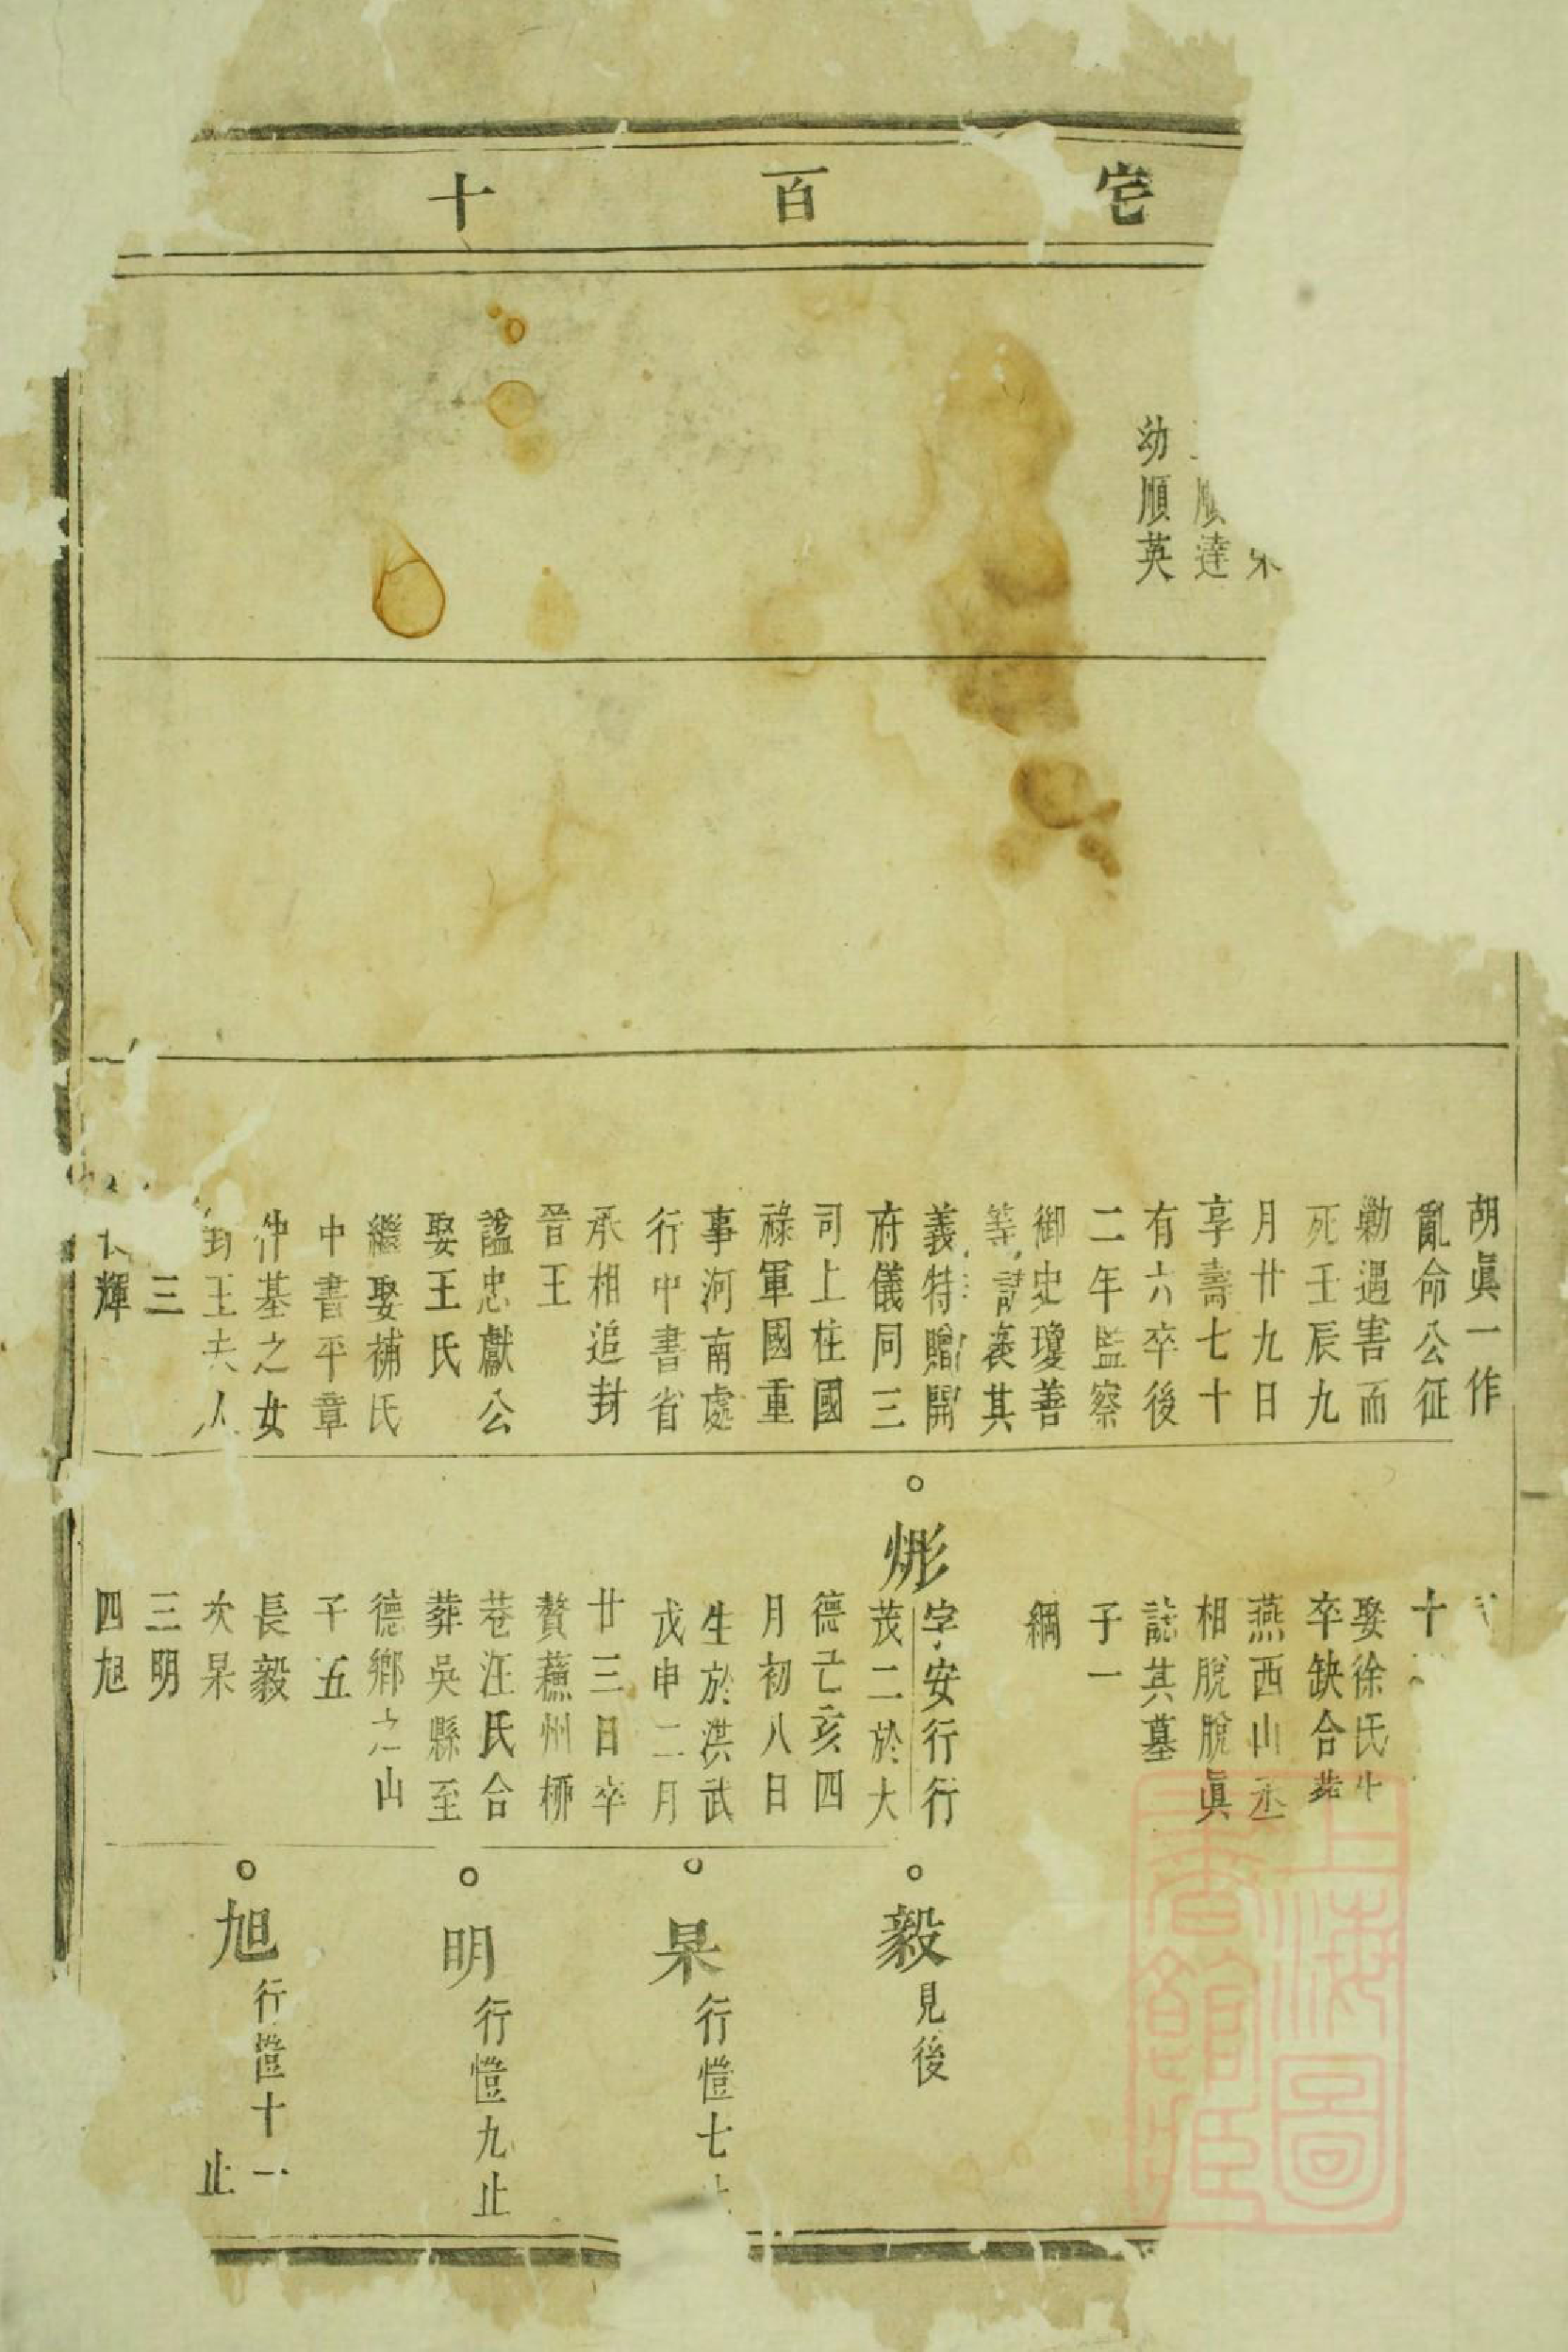 宅百十
順達
幼順英
胡眞一作
亂命公征
勦遇害而
死壬辰九
月廿九日
享壽七十
有六卒後
二年監察
御史瓊善
等請褒其
義特贈開
府儀同三
司上柱國
祿軍國重
事河南處
行中書省
承相追封
晉王
諡忠獻公
娶王氏
繼娶補氏
中書平章
仲基之女
封王夫人
三
輝
十
娶徐氏
卒缺合葬
燕西山丞
相脫脫眞
誌其墓
子一
綱
彬
字安行行
茂二於大
德己亥四
月初八日
生於洪武
戊申二月
廿三日卒
贅蘇州栁
巷汪氏合
葬吳縣至
德鄉之山
子五
長毅
次杲
三明
四旭
毅 見後
杲 行愷七
明 行愷九止
旭 行愷十一
止
上海圖
書館臧